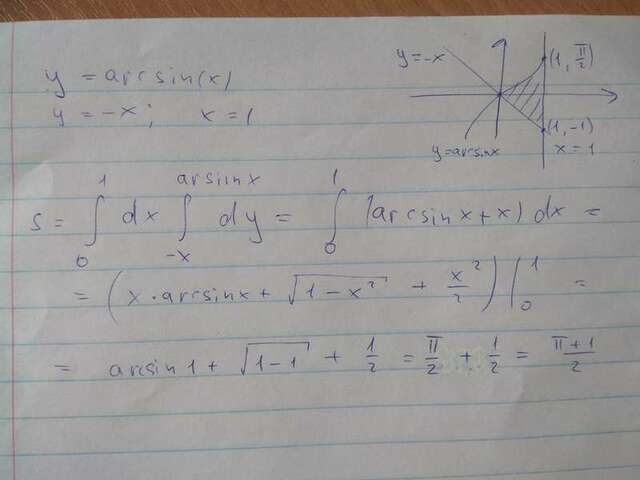 y = arcsin(x)
y = -x; x = 1
y=-x
(1, π/2)
(1, -1)
x = 1
y=arcsinx
S = ∫₀¹ dx ∫₋ₓ^(arsinx) dy = ∫₀¹ (arcsinx+x) dx =
= (x·arcsinx + √(1-x²) + x²/2) |₀¹ =
= arcsin1 + √(1-1) + 1/2 = π/2 + 1/2 = π+1/2